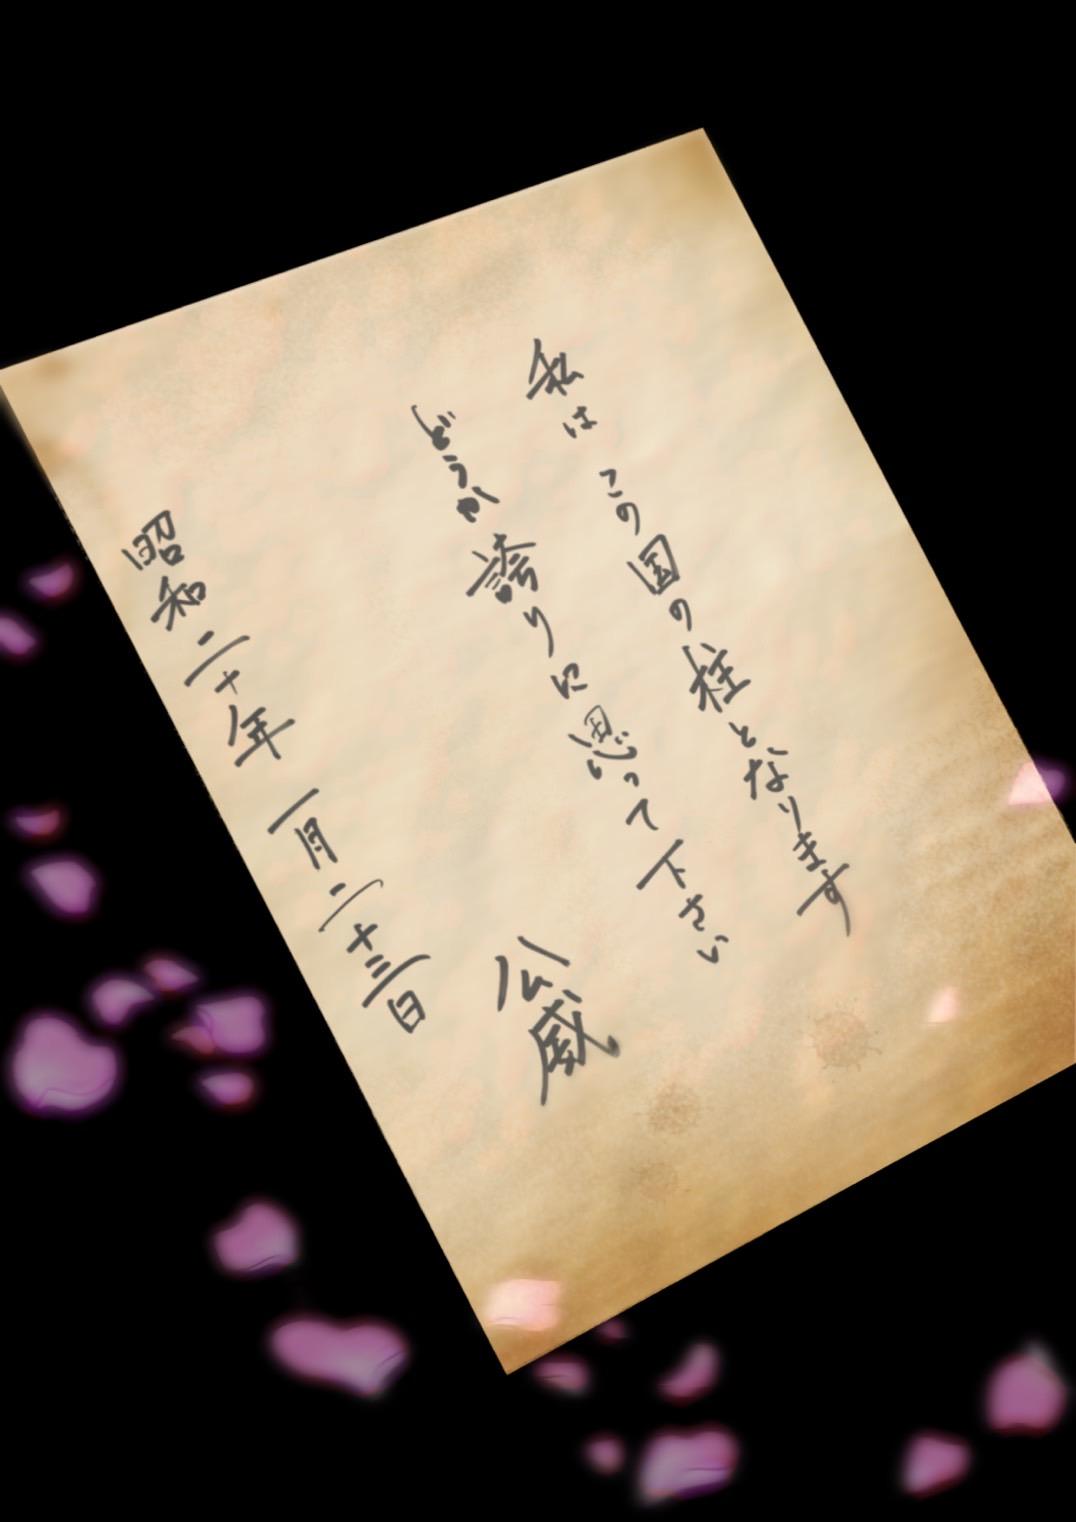 私は この国の柱となります
どうか誇りに思って下さい
公威
昭和二十年 一月二十三日